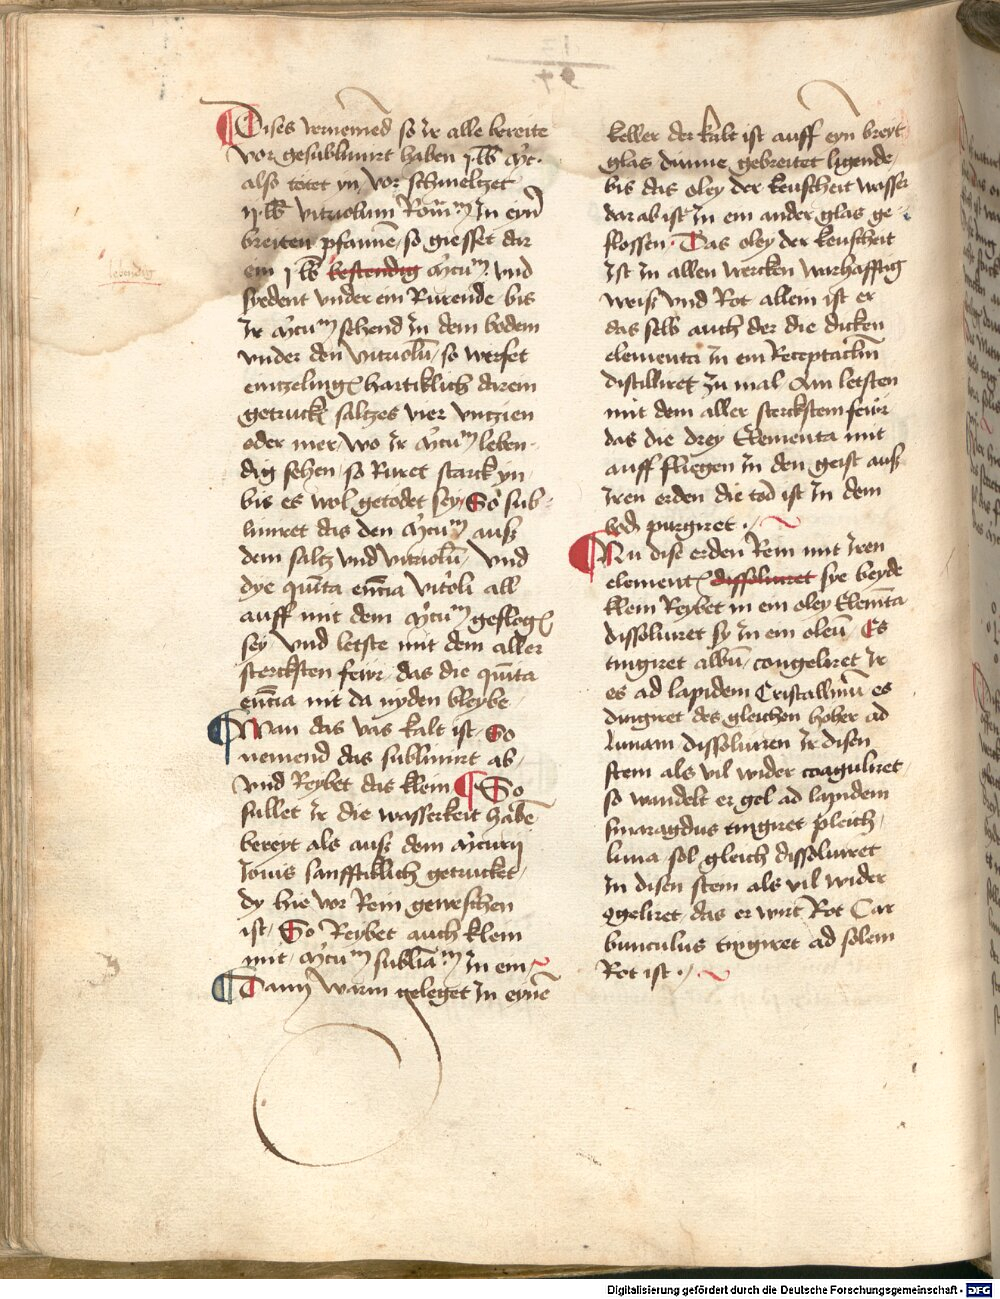 Dises vernemed so Ir alle bereite
vor gesublimirt haben j lb ☿c.
also tötet yn, vor schmeltzet
ij lb vitriolum Rom̄ In eyn̄
breiten pfannē, so giesset dar
ein j lb bestendig ☿cuᵐ und
lebendig
siedent under ein Rurende, bis
Ir ☿cuᵐ sehend In dem bodem
under den vitriolū, so werfet
eintzeling hartiklich darein
getruckt saltzes vier untzien
oder mer, wo Ir ☿cuᵐ leben-
dig sehen, so Ruret starck yn
bis es wol getödet sey. So sub-
limret das den ☿cuᵐ auß
dem saltz und vitriolū, und
dye quīta encia vitroli all
auff mit dem ☿cuᵐ geflogē
sey und letste mit dem aller
sterckstен feūr, das die quīta
encia nit da nyden bleybe
Wan das vas kalt ist, So
nemend das sublimirt ab,
und Reybet das klein So
sullet Ir die wasserkeit habē
bereyt als auß dem ☿curij
Iouis sanfftiklich getrucket,
dy hie vor Rein geweschen
ist, So Reybet auch klein
mit ☿cuᵐ subliāᵐ In ein
Dann warm geleget In eynē
keller der kalt ist auff eyn breyt
glas dünne gebreitet ligende,
bis das oley der keuscheit wasser
dar ab ist In ein ander glas ge-
flossen. Das oley der keuscheit
Ist In allen wercken warhafftig
weiß und Rot allein ist er
das selb auch der die dicken
elementa In ein Receptaclm̄
distilliret zu mal Am letsten
mit dem aller sterckstem feūr
das die drey Elementa mit
auff fliegen In den geist auß
Iren erden die tod ist In dem
bodē purgiret.
Nu dise erden Rein mit Iren
elementē dissoluiret sye beyde
klein Reybet in ein oley Elemēta
dissoluiret sy In ein oleū. Es
tingiret albū, congeliret Ir
es ad lapidem Cristallinū es
dingiret des gleichen hoher ad
lunam dissoluiren Ir disen
stein als vil wider coaguliret,
so wandelt er gel ad lapidem
smaragdus tingiret pleich,
luna sol gleich dissoluiret
In disen stein als vil wider
ꝯgeliret, das er wirt Rot Car
bunculus tingiret ad solem
Rot ist.
Digitalisierung gefördert durch die Deutsche Forschungsgemeinschaft - DFG